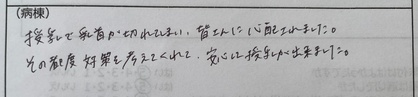 (病棟)
授乳で乳首が切れてしまい、皆さんに心配されました。
その都度対策を考えてくれて、安心して授乳が出来ました。